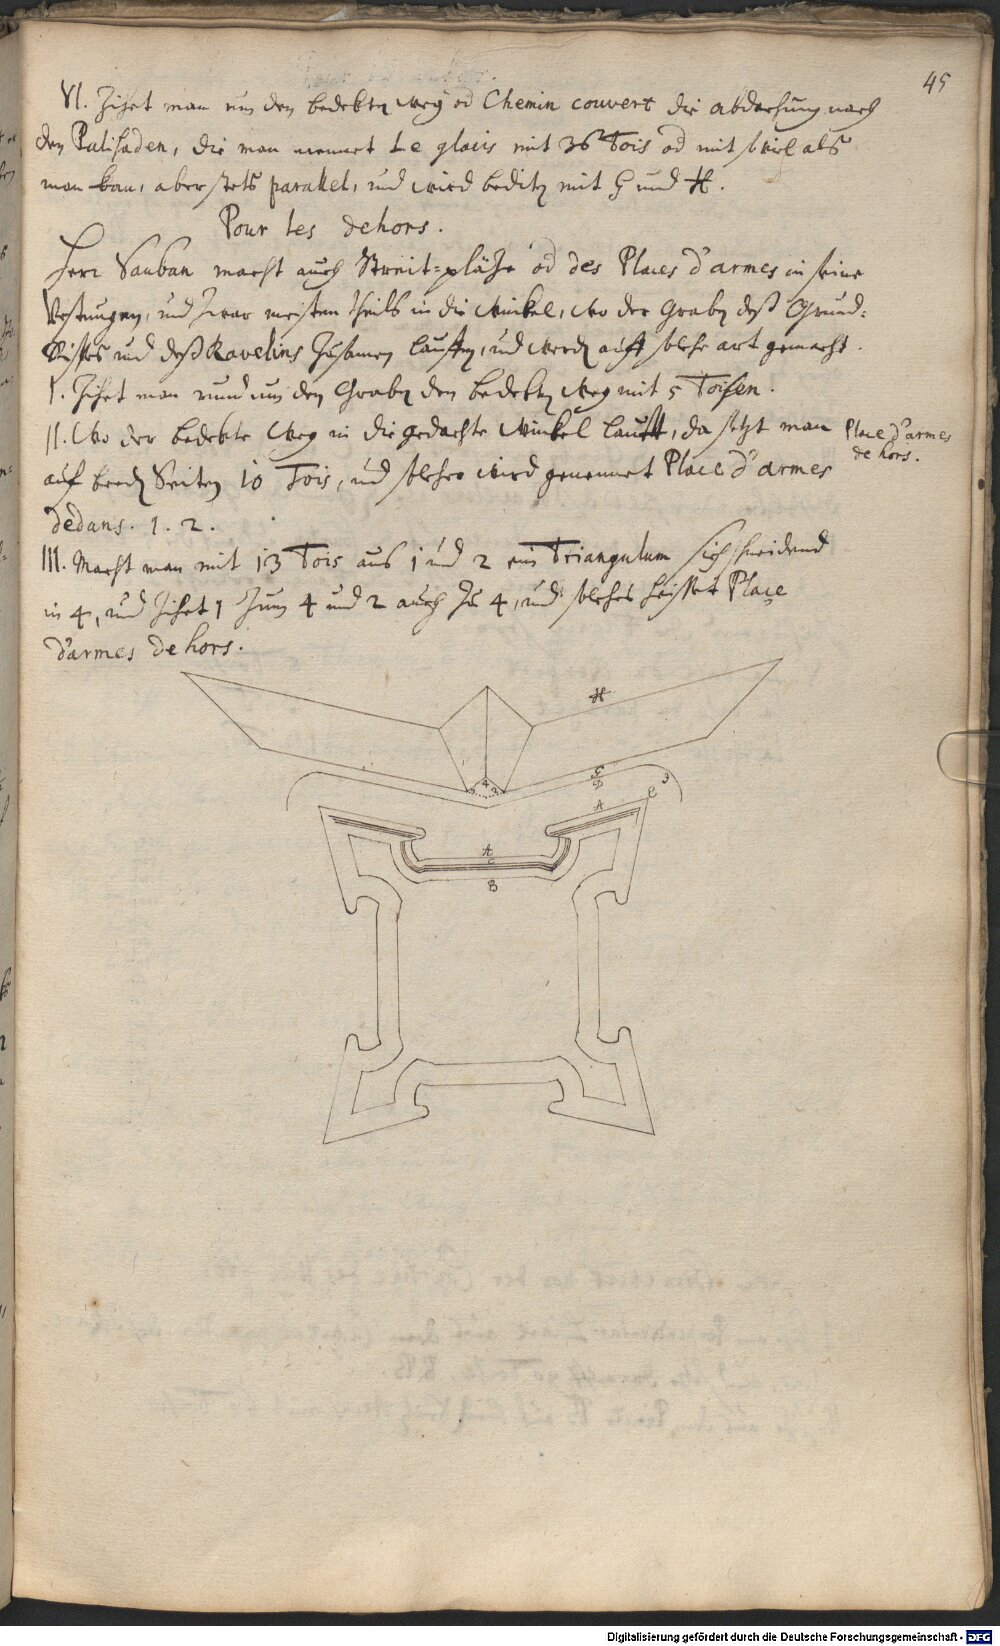 45
VI. Zihet man um den bedekten Weg od Chemin couvert die abdachung nach
den Palisaden, die man nennet Le glacis mit 36 Tois od mit so viel als
man kan, aber stets parallel, und wird mit G und H.
Pour les dehors.
Herr Vauban macht auch Streit-pläze od des Places d'armes in seine
Vestungen, und zwar meisten theils in die Winkel, Wo der Graben deß Grund-
Risses und deß Ravelins zusamen lauffen, und werden auff solche art gemacht.
I. Zihet man rund um den Graben den bedekten Weg mit 5 Toisen.
II. Wo der bedekte Weg in die gedachte Winkel laufft, da sezt man
Place d'armes
dehors.
auf beeden Seiten 10 Tois, und solches wird genennet Place d'armes
dedans. 1. 2.
III. Macht man mit 13 Tois aus 1 und 2 ein Triangulum sich schneidend
in 4, und zihet 1 zum 4 und 2 auch zu 4, und solches heisset Place
d'armes dehors.
H
4
2
G
D
3
A
A
C
B
Digitalisierung gefördert durch die Deutsche Forschungsgemeinschaft - DFG